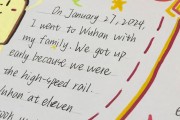 On January 27, 2024,
I went to Wuhan with
my family. We got up
early because we were
the high-speed rail.
Wuhan at eleven
took